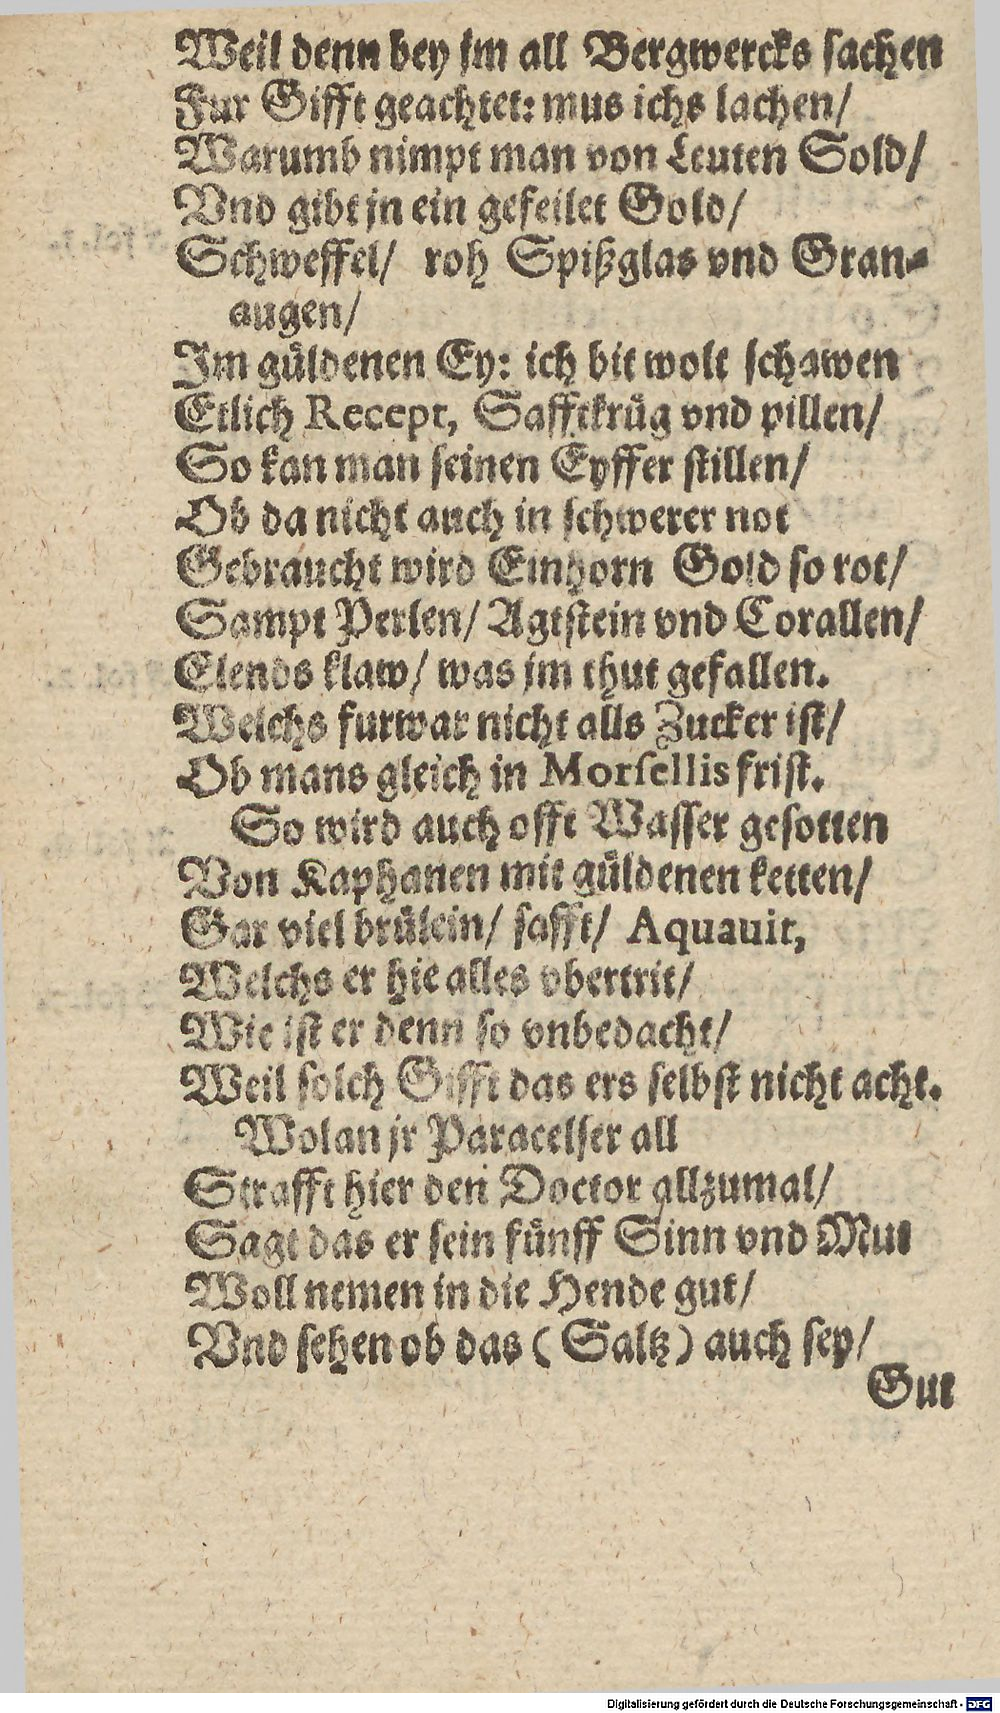 Weil denn bey jm all Bergwercks sachen
Fur Gifft geachtet: mus ichs lachen/
Warumb nimpt man von Leuten Sold/
Vnd gibt jn ein gefeilet Gold/
Schweffel/ roh Spißglas vnd Gran-
augen/
Im güldenen Ey: ich bit wolt schawen
Etlich Recept, Safftkrüg vnd pillen/
So kan man seinen Eyffer stillen/
Ob da nicht auch in schwerer not
Gebraucht wird Einhorn Gold so rot/
Sampt Perlen/ Agtstein vnd Corallen/
Elends klaw/ was jm thut gefallen.
Welchs furwar nicht alls Zucker ist/
Ob mans gleich in Morsellis frist.
So wird auch offt Wasser gesotten
Von Kaphanen mit güldenen ketten/
Gar viel brülein/ safft/ Aquavit,
Welchs er hie alles vbertrit/
Wie ist er denn so vnbedacht/
Weil solch Gifft das ers selbst nicht acht.
Wolan jr Paracelser all
Strafft hier den Doctor allzumal/
Sagt das er sein fünff Sinn vnd Mut
Woll nemen in die Hende gut/
Vnd sehen ob das (Saltz) auch sey/
Gut
Digitalisierung gefördert durch die Deutsche Forschungsgemeinschaft - DFG